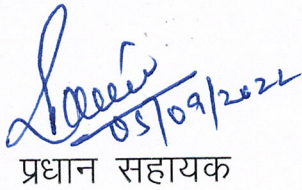 05/09/2022
प्रधान सहायक